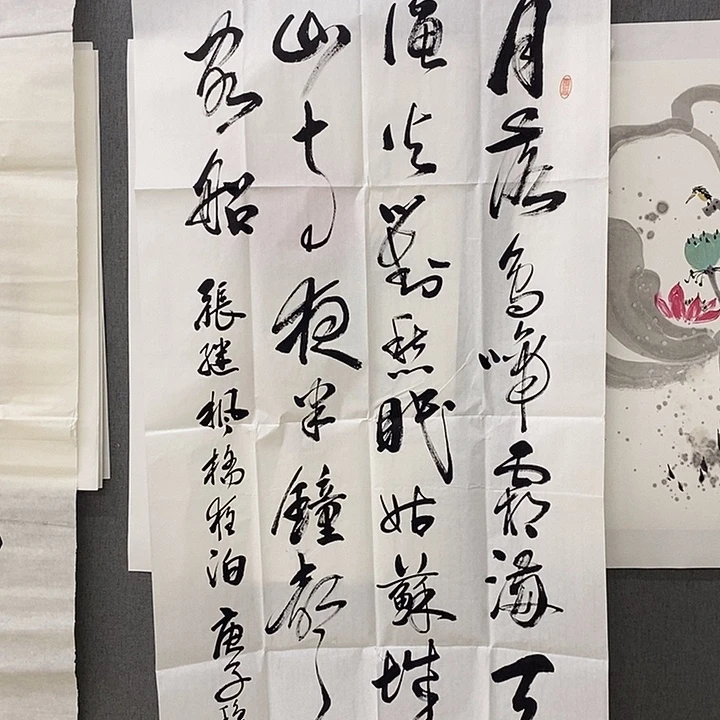 月落烏啼霜滿天
漁火對愁眠姑蘇城
山寺夜半鐘聲到
客船 張繼楓橋夜泊 庚子